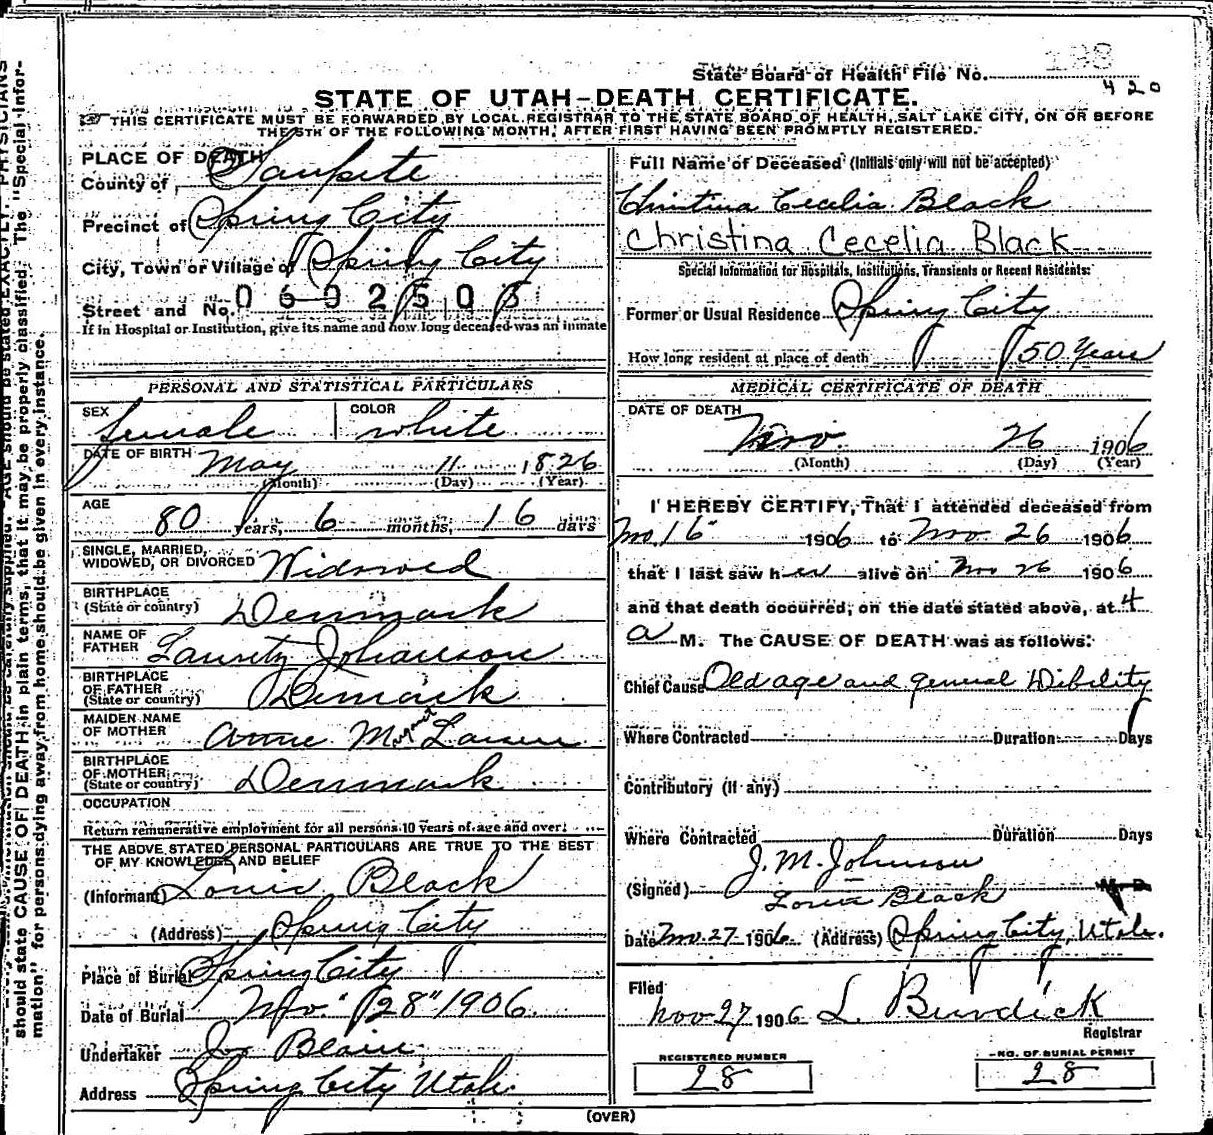 State Board of Health File No. 198
420
STATE OF UTAH-DEATH CERTIFICATE.
THIS CERTIFICATE MUST BE FORWARDED BY LOCAL REGISTRAR TO THE STATE BOARD OF HEALTH, SALT LAKE CITY, ON OR BEFORE
THE 5TH OF THE FOLLOWING MONTH, AFTER FIRST HAVING BEEN PROMPTLY REGISTERED.
PLACE OF DEATH
County of Sanpete
Precinct of Spring City
City, Town or Village of Spring City
Street and No. 0602505
If in Hospital or Institution, give its name and how long deceased was an inmate
PERSONAL AND STATISTICAL PARTICULARS
SEX female COLOR white
DATE OF BIRTH May 11 1826
(Month) (Day) (Year)
AGE 80 years, 6 months, 16 days
SINGLE, MARRIED,
WIDOWED, OR DIVORCED Widowed
BIRTHPLACE
(State or country) Denmark
NAME OF
FATHER Lauritz Johanson
BIRTHPLACE
OF FATHER
(State or country) Demark
MAIDEN NAME
OF MOTHER Anne M Larsen
BIRTHPLACE
OF MOTHER
(State or country) Denmark
OCCUPATION
Return remunerative employment for all persons 10 years of age and over
THE ABOVE STATED PERSONAL PARTICULARS ARE TRUE TO THE BEST
OF MY KNOWLEDGE AND BELIEF
(Informant) Louis Black
(Address) Spring City
Place of Burial Spring City
Date of Burial Nov. 28" 1906
Undertaker Jos Blain
Address Spring City Utah.
Full Name of Deceased (Initials only will not be accepted)
Christina Cecelia Black
Christina Cecelia Black
Special Information for Hospitals, Institutions, Transients or Recent Residents:
Former or Usual Residence Spring City
How long resident at place of death 50 Years
MEDICAL CERTIFICATE OF DEATH
DATE OF DEATH
Nov 26 1906
(Month) (Day) (Year)
I HEREBY CERTIFY, That I attended deceased from
Nov. 16" 1906 to Nov 26 1906
that I last saw her alive on Nov 26 1906
and that death occurred, on the date stated above, at 4
a M. The CAUSE OF DEATH was as follows:
Chief Cause Old age and general Dibility
Where Contracted Duration Days
Contributory (If any)
Where Contracted Duration Days
J. M. Johnson
(Signed) Louis Black M. D.
Date Nov. 27 1906 (Address) Spring City, Utah.
Filed
Nov 27 1906 L. Burdick
Registrar
REGISTERED NUMBER
28
NO. OF BURIAL PERMIT
28
(OVER)
should state CAUSE OF DEATH in plain terms, that it may be properly classified. The "Special Infor-
mation" for persons dying away from home should be given in every instance.